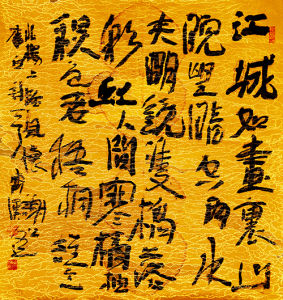 江城如畫裏山
晚望晴空兩水
夾明鏡雙橋落
彩虹人間寒橘柚
秋色老梧桐誰念
北樓上臨風懷謝公
李白詩